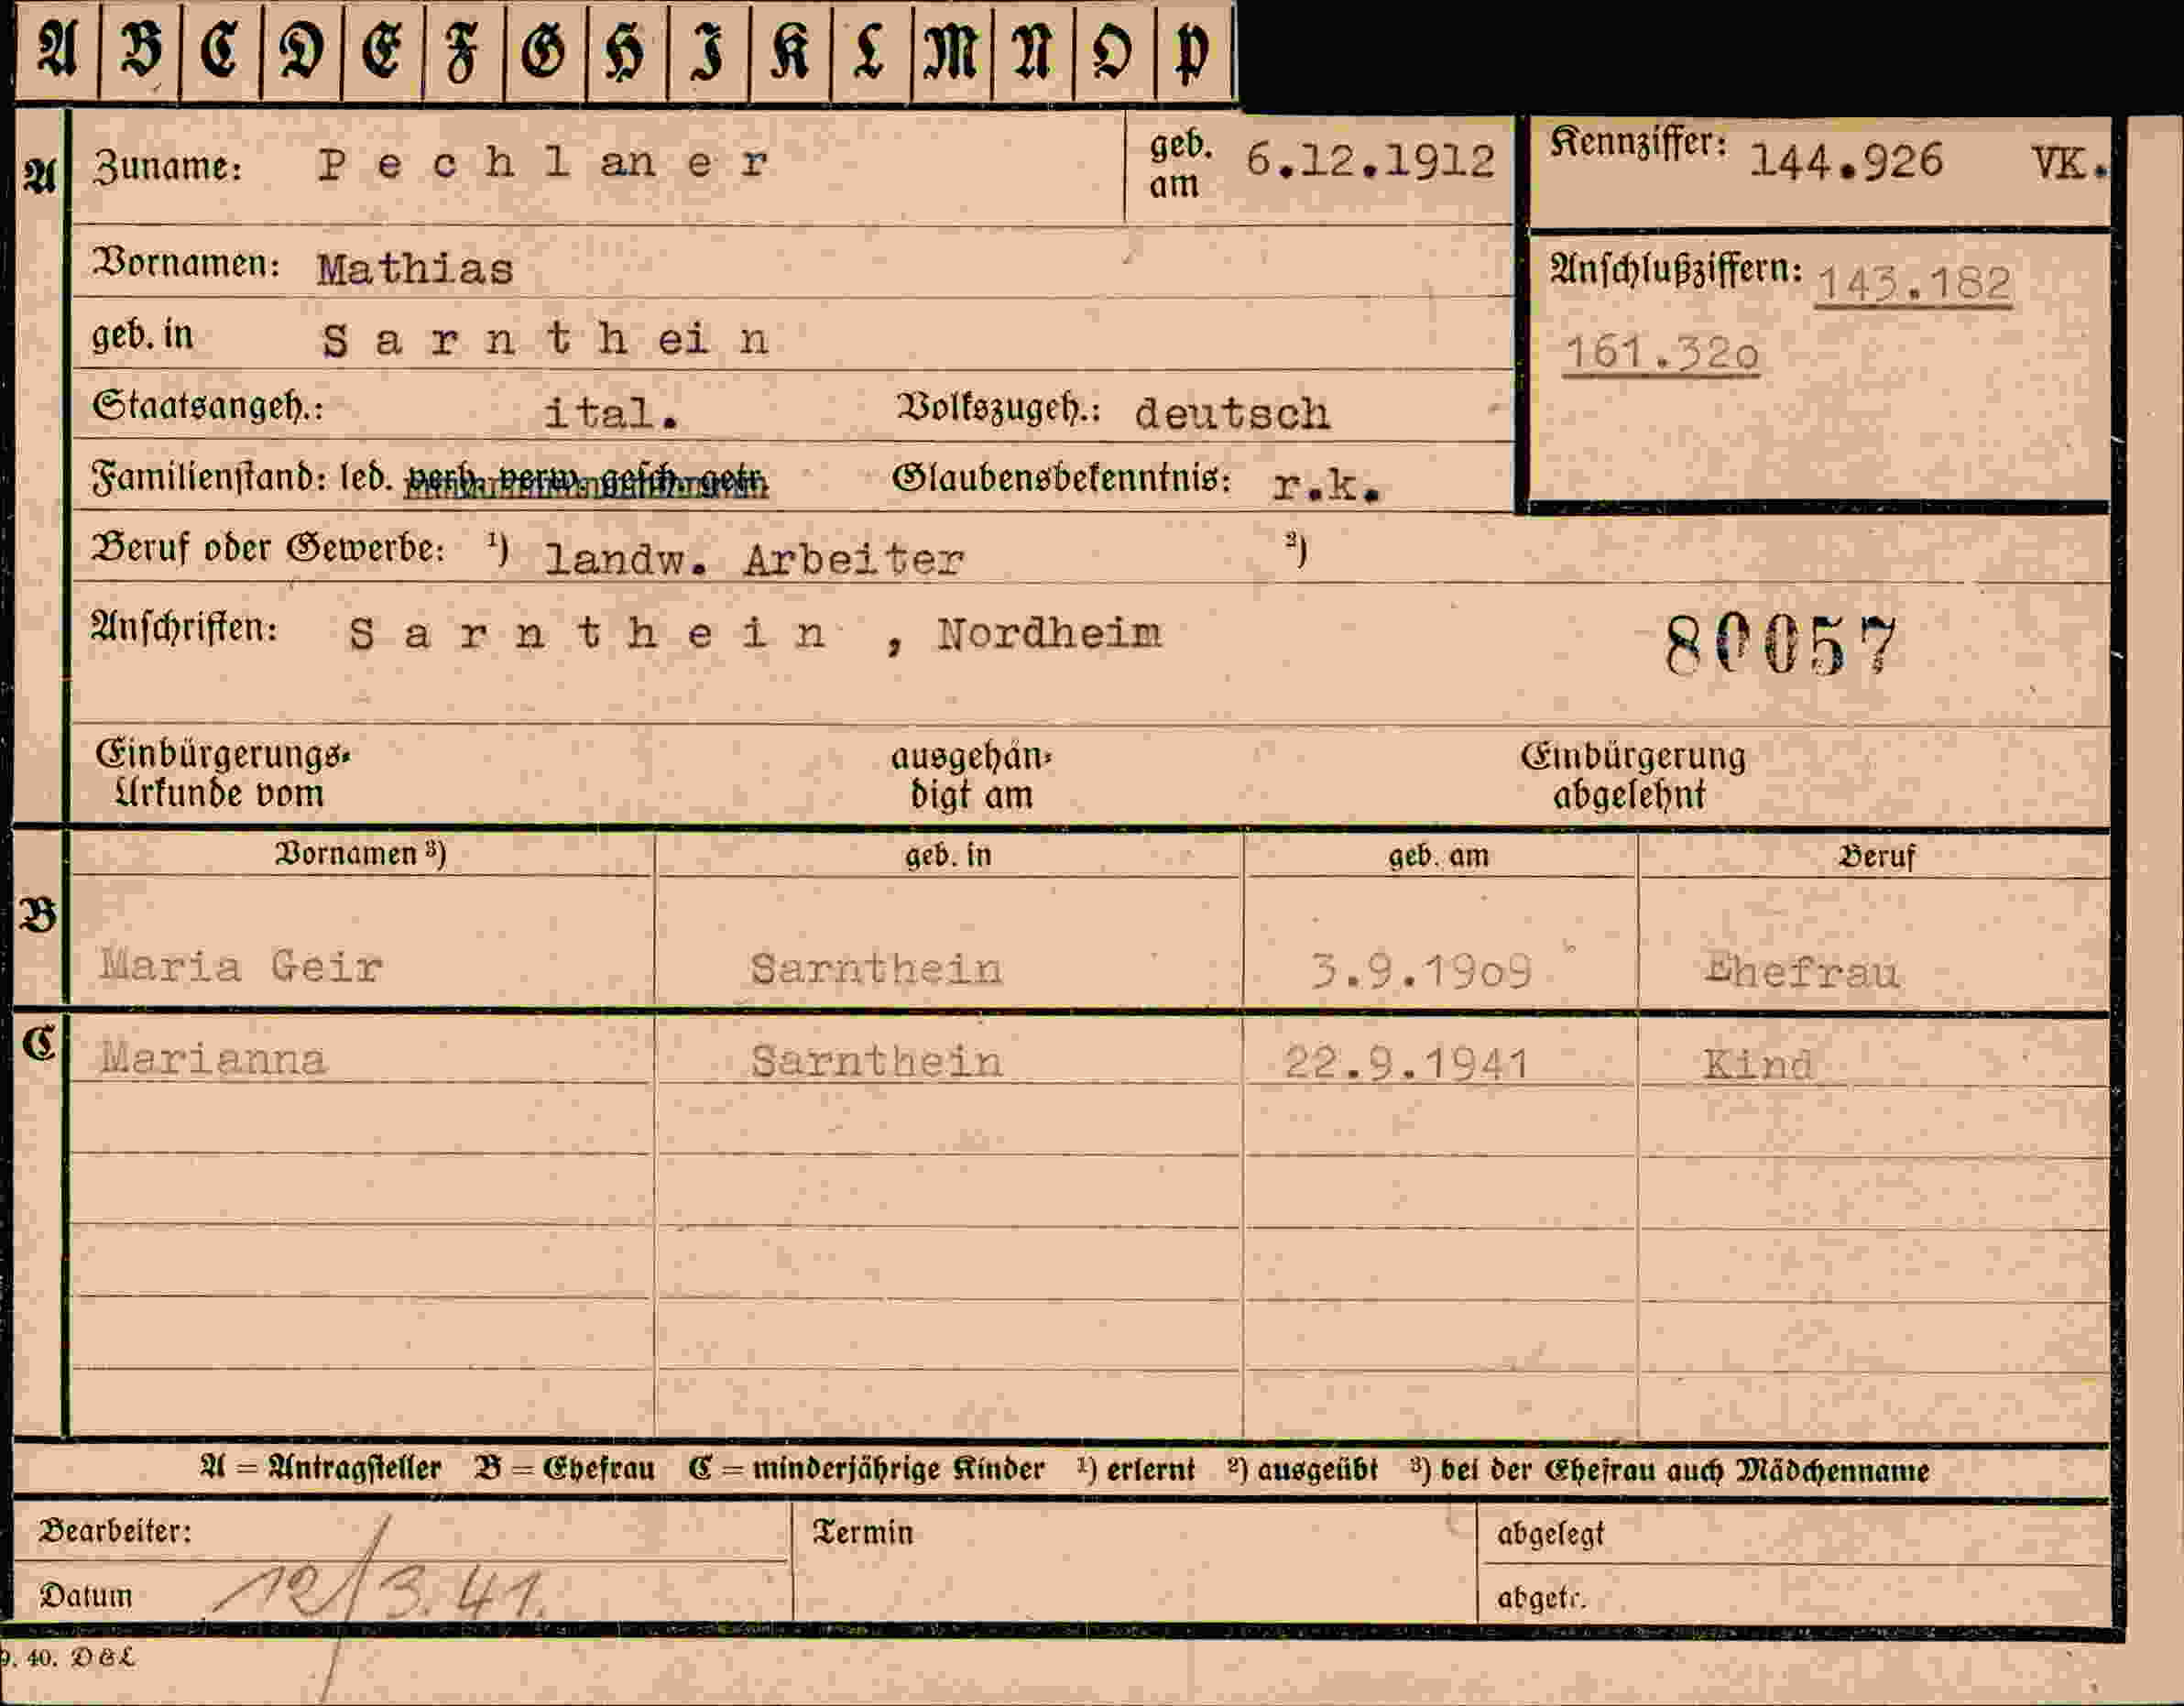 A B C D E F G H I K L M N O P
A Zuname: Pechlaner geb. am 6.12.1912 Kennziffer: 144.926 VK.
Vornamen: Mathias Anschlußziffern: 143.182
geb. in Sarnthein 161.32o
Staatsangeh.: ital. Volkszugeh.: deutsch
Familienstand: led. verh. verw. gesch. getr. Glaubensbekenntnis: r.k.
Beruf oder Gewerbe: ¹) landw. Arbeiter ²)
Anschriften: Sarnthein, Nordheim 80057
Einbürgerungs- ausgehän- Einbürgerung
Urkunde vom digt am abgelehnt
Vornamen ³) geb. in geb. am Beruf
B
Maria Geir Sarnthein 3.9.19o9 Ehefrau
C Marianna Sarnthein 22.9.1941 Kind
A = Antragsteller B = Ehefrau C = minderjährige Kinder ¹) erlernt ²) ausgeübt ³) bei der Ehefrau auch Mädchenname
Bearbeiter: Termin abgelegt
Datum 12/3.41. abgetr.
9. 40. DBL